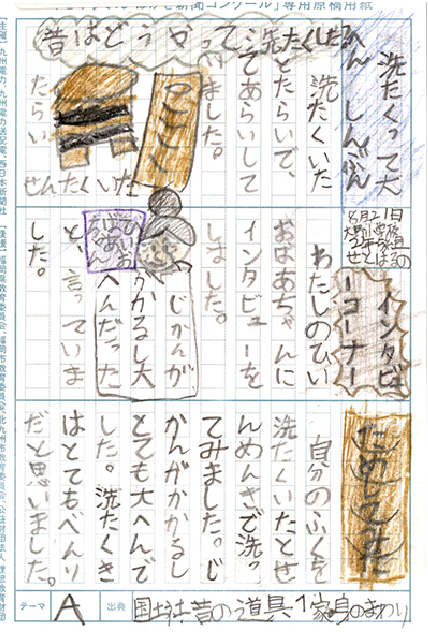 新聞コンクール」専用原稿用紙
洗たくって大
へん しんぶん
6月21日
昔はどうやって洗たくした
洗たくいた
とたらいで、
こてあらいして
いました。
たらい
せんたくいた
インタビ
ューコーナー
わたしのひい
おばあちゃんに
インタビューを
しました。
ひいお
ばあ
ちゃん
じかんが
かかるし大
へんだった
と、言っていま
した。
ためしてみた
自分のふくを
洗たくいたとせ
んめんきで洗っ
てみました。じ
かんがかかるし
とても大へんで
した。洗たくき
はとてもべんり
だと思いました。
テーマ
A
出典
昔の道具
家
身のまわり